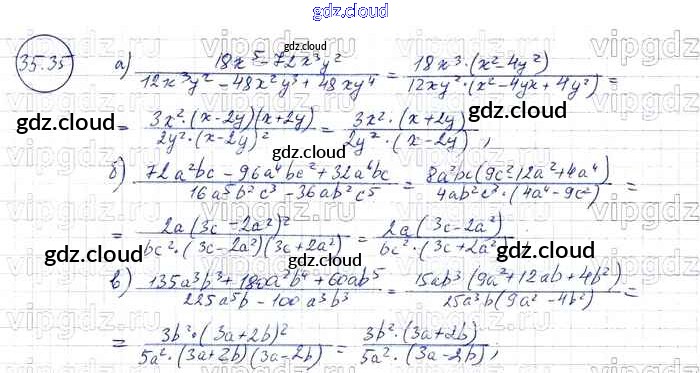 gdz.cloud
35.35 а) (18x⁵ - 72x³y²)/(12x³y² - 48x²y³ + 48xy⁴) = (18x³·(x² - 4y²))/(12xy²·(x² - 4yx + 4y²)) =
= (3x²·(x-2y)(x+2y))/(2y²·(x-2y)²) = (3x²·(x+2y))/(2y²·(x-2y));
б) (72a²bc - 96a⁴bc² + 32a⁶bc)/(16a⁵b²c³ - 36ab²c⁵) = (8a²bc(9c² 12a² + 4a⁴))/(4ab²c³·(4a⁴ - 9c²)) =
= (2a(3c - 2a²)²)/(bc²·(3c - 2a²)(3c + 2a²)) = (2a(3c - 2a²))/(bc²·(3c + 2a²));
в) (135a³b³ + 180a²b⁴ + 60ab⁵)/(225a⁵b - 100a³b³) = (15ab³(9a² + 12ab + 4b²))/(25a³b(9a² - 4b²)) =
= (3b²·(3a+2b)²)/(5a²·(3a+2b)(3a-2b)) = (3b²·(3a+2b))/(5a²·(3a-2b));